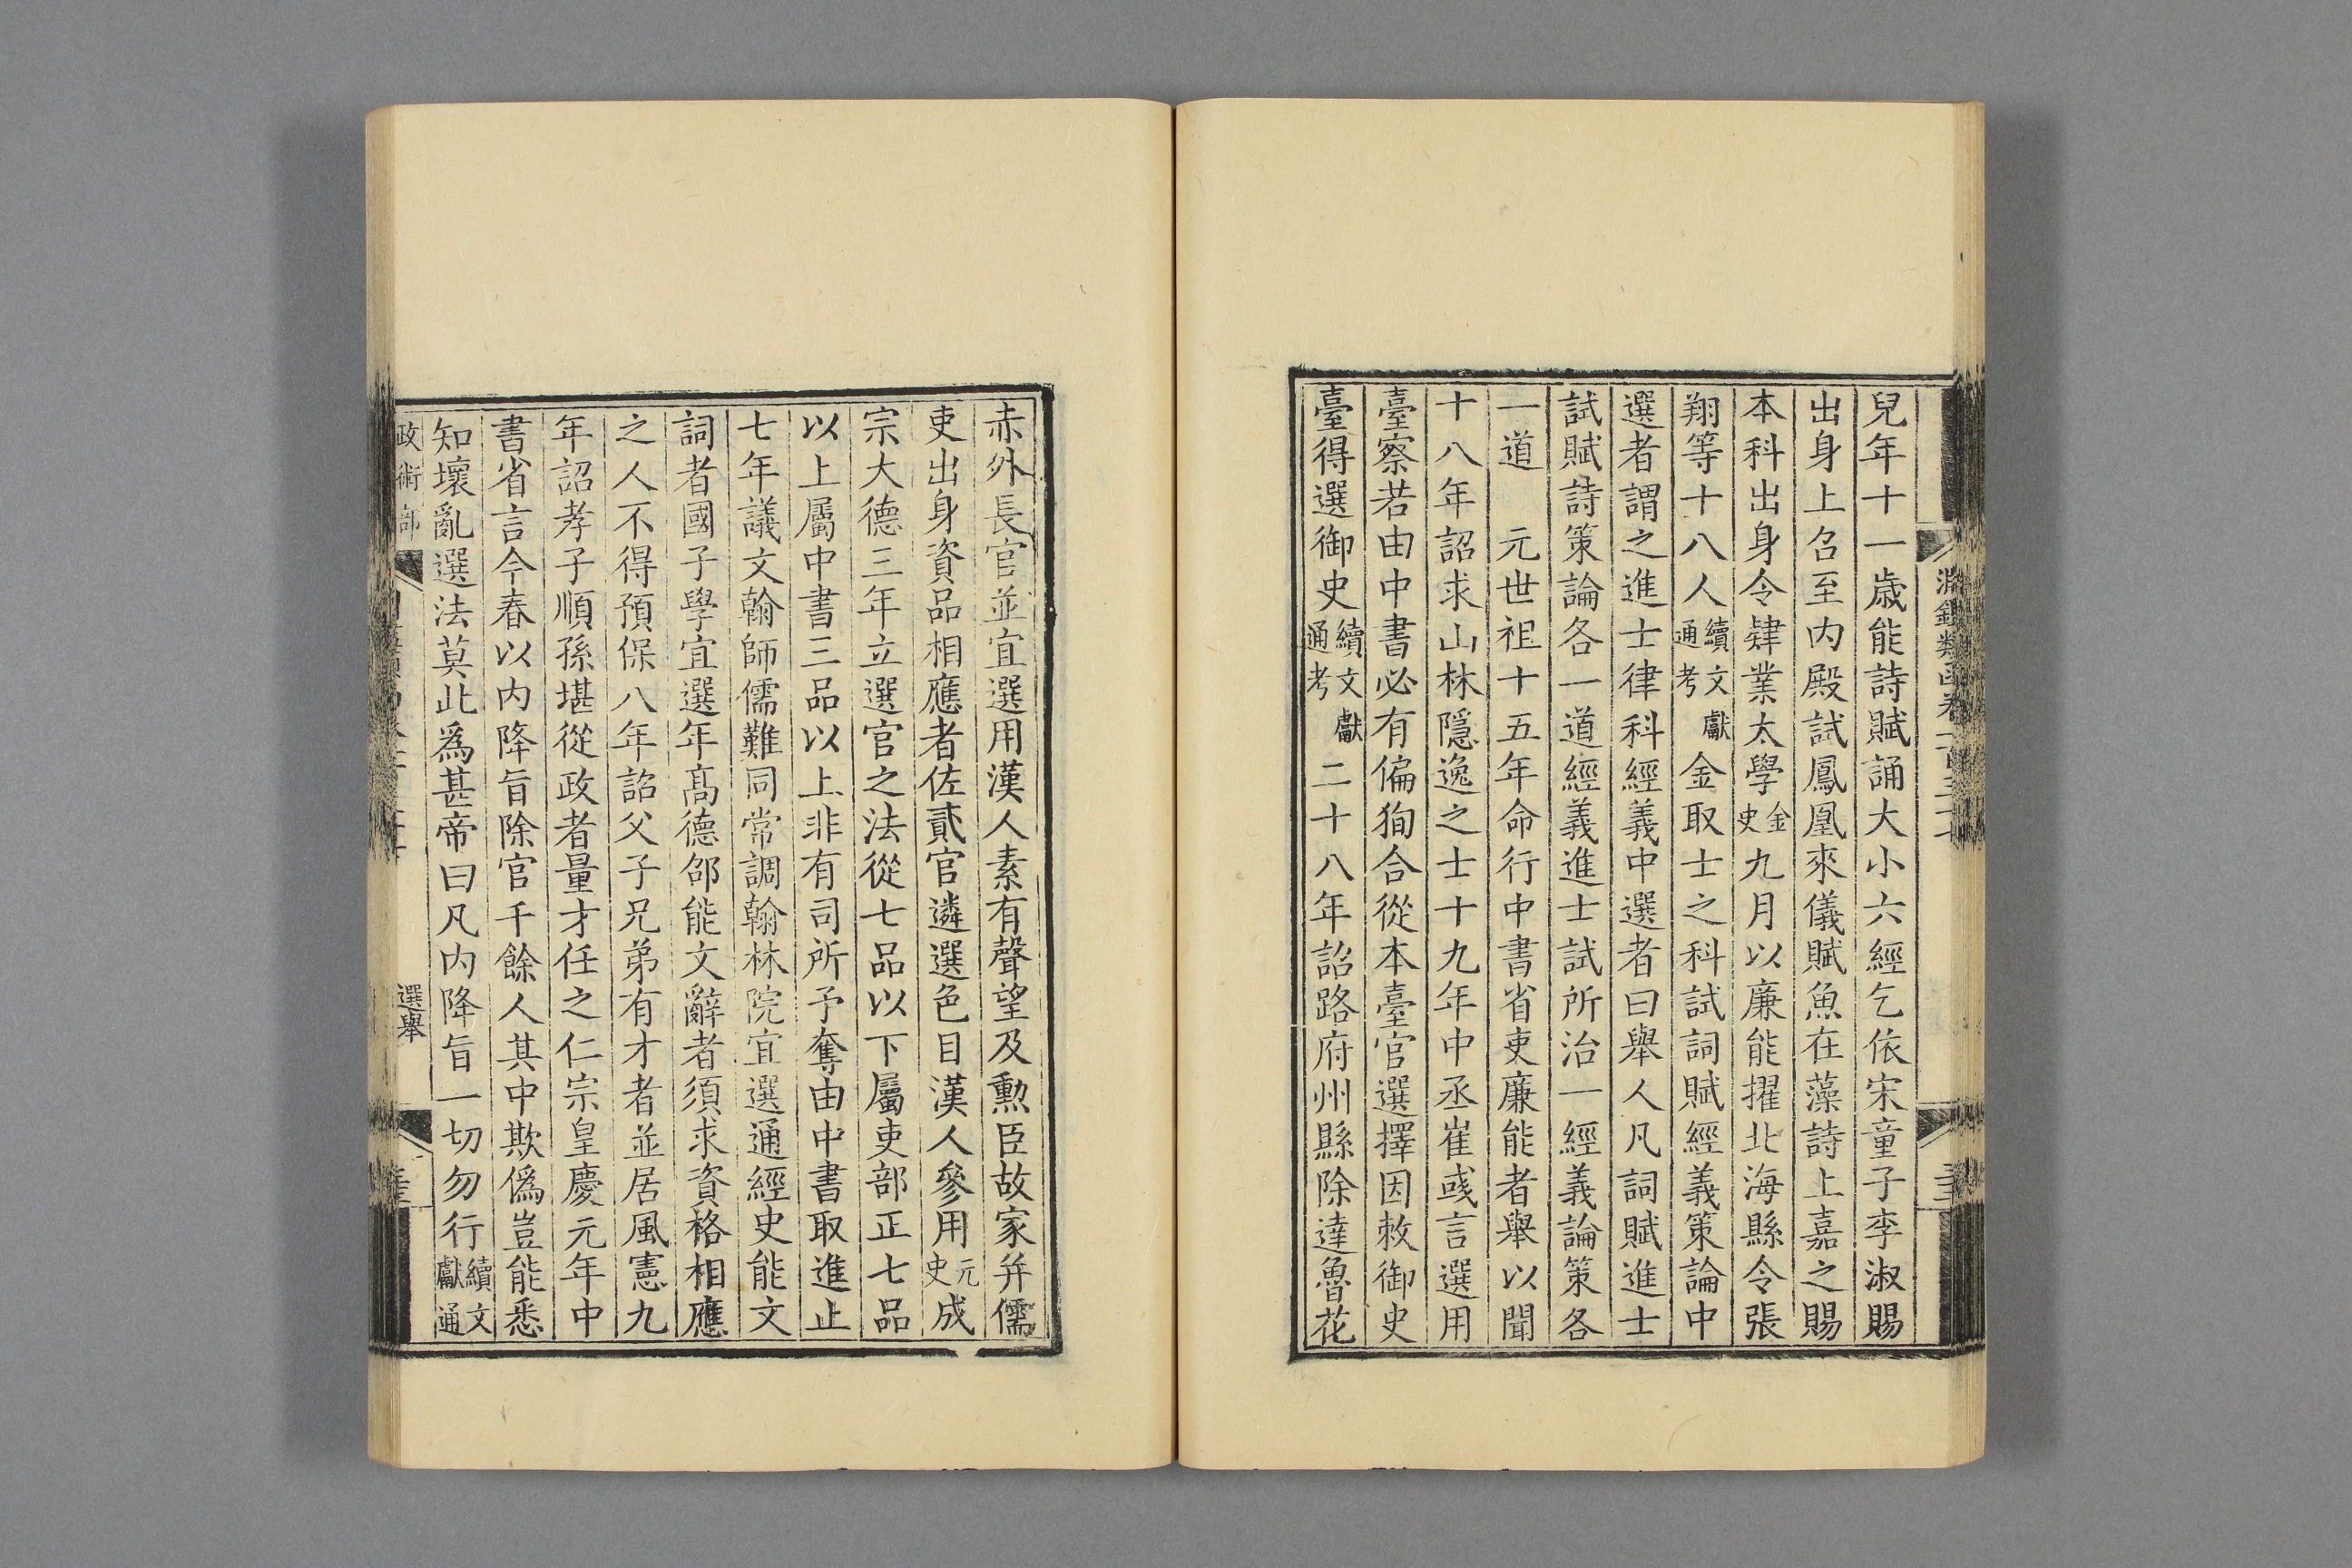 淵鑑類函卷一百三十七
兒年十一歲能詩賦誦大小六經乞依宋童子李淑賜
出身上召至内殿試鳳凰來儀賦魚在藻詩上嘉之賜
本科出身令肄業太學金史九月以廉能擢北海縣令張
翔等十八人續文獻通考金取士之科試詞賦經義策論中
選者謂之進士律科經義中選者曰舉人凡詞賦進士
試賦詩策論各一道經義進士試所治一經義論策各
一道　元世祖十五年命行中書省吏廉能者舉以聞
十八年詔求山林隱逸之士十九年中丞崔彧言選用
臺察若由中書必有偏狥合從本臺官選擇因敕御史
臺得選御史續文獻通考二十八年詔路府州縣除達魯花
赤外長官並宜選用漢人素有聲望及勲臣故家并儒
吏出身資品相應者佐貳官遴選色目漢人參用元史成
宗大德三年立選官之法從七品以下屬吏部正七品
以上屬中書三品以上非有司所予奪由中書取進止
七年議文翰師儒難同常調翰林院宜選通經史能文
詞者國子學宜選年髙德邵能文辭者須求資格相應
之人不得預保八年詔父子兄弟有才者並居風憲九
年詔孝子順孫堪從政者量才任之仁宗皇慶元年中
書省言今春以内降旨除官千餘人其中欺僞豈能悉
知壞亂選法莫此爲甚帝曰凡内降旨一切勿行續文獻通
政術部
選舉